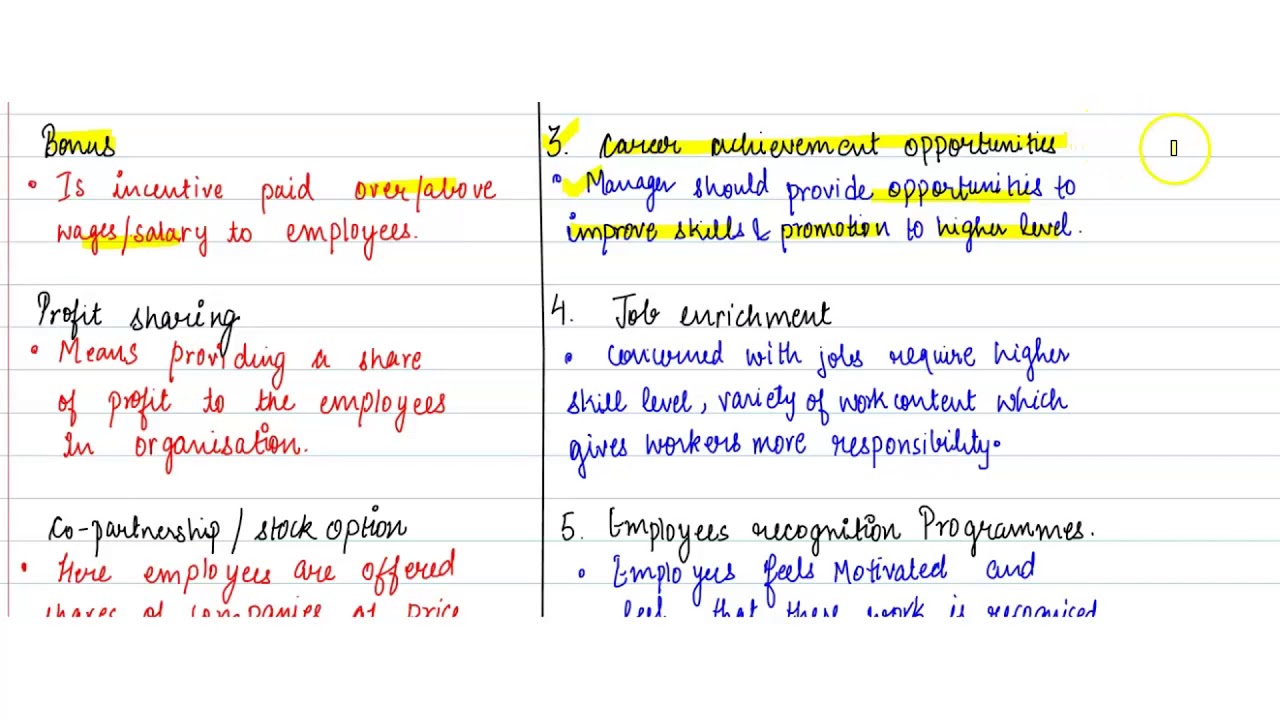 Bonus
• Is incentive paid over/above
wages/salary to employees.
Profit sharing
• Means providing a share
of profit to the employees
In organisation.
Co-partnership / stock option
• Here employees are offered
shares of companies at price
3. Career achievement opportunities
• Manager should provide opportunities to
improve skills & promotion to higher level.
4. Job enrichment
• concerned with jobs require higher
skill level, variety of work content which
gives workers more responsibility.
5. Employees recognition Programmes.
• Employees feels Motivated and
feel that there work is recognised